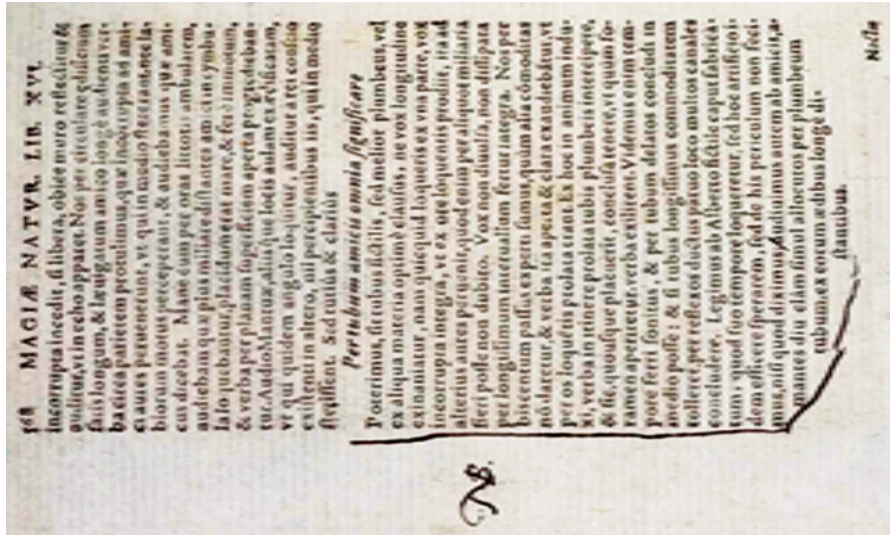 568 MAGIÆ NATVR. LIB. XVI.
incorrupta incedit, si libera, obice muro reflectitur &
auditur, vt in echo apparet. Nos per circulare ædificium
satis longum, & læuigatum amico longè audienti ver-
ba circa parietem protulimus, quæ incorrupta ad ami-
ci aures peruenerunt, vt qui in medio steterant, nec la-
biorum motus perceperant, & audiebamus quæ ami-
cus dicebat. Mane cum per oras littoris ambularem,
audiebam quæ plus miliare distantes amici in symbu-
la loquebantur, placidum erat mare, & ferè immotum,
& verba per planam superficiem aperta progrediebantur.
Audio Mantuæ, aliisque locis aulam ex ædificatam,
vt qui quidem angulo loquitur, auditur a rei conscio
existenti in altero, nil percipientibus iis, qui in medio
stetissent. Sed tutius & clarius
Per tubum amicis omnia significare
Poterimus, sit tubus fictilis, sed melior plumbeus, vel
ex aliqua materia optimè clausus, ne vox longitudine
exinaniatur, nam quicquid loqueris ex vna parte, vox
incorrupta integra, vt ex ore loquentis prodiit, ita ad
alterius aures peruenit, quod enim per aliquot miliaria
fieri posse non dubito. Vox non diuulsa, non dissipata
per longissimum interuallum fertur integra. Nos per
biscentum passus experti sumus, quùm alia cómoditas
nó daretur, & verba ita aperta & clare exaudiebátur, vt
per os loquétis prolata erant. Ex hoc in animum indu-
xi, verba in itinere prolata tubis plumbeis intercipere,
& sic, quousque placuerit, conclusa tenere, vt quum fo-
ramen aperiretur: verba exilirent. Videmus enim tem-
pore fieri sonitus, & per tubum delatos concludi in
medio posse: & si tubus longissimus commoditatem
tolleret, per reflexos ductus paruo loco multos canales
concludere. Legimus ab Alberto fictile caput fabrica-
tum, quod suo tempore loqueretur, sed hoc artificio i-
dem efficere sperarem, sed de his periculum non feci-
mus, nisi quod diximus. Audiuimus autem ab amicis, a-
mantes diu clam simul allocutos per plumbeum
tubum, ex eorum ædibus longè di-
stantibus.
Nictis
NB.